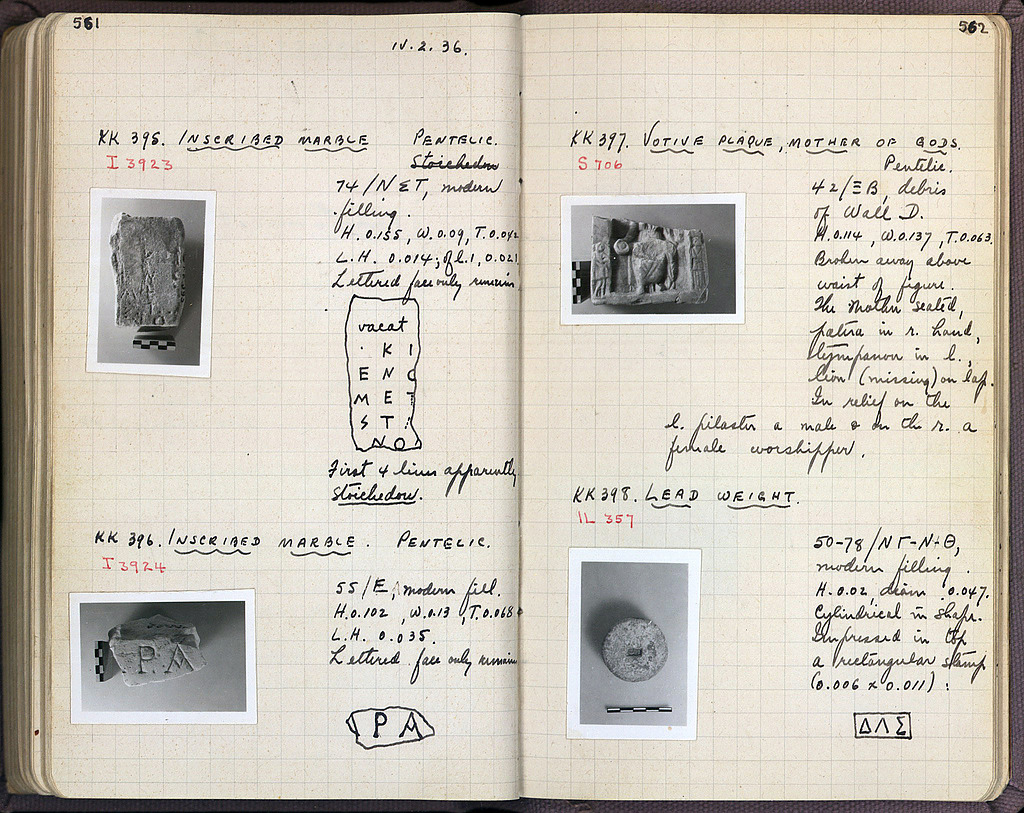 561
IV. 2. 36.
KK 395. INSCRIBED MARBLE PENTELIC.
I 3923
Stoichedon
74/NET, modern
filling.
H. 0.155, W. 0.09, T. 0.042
L.H. 0.014; of l.1, 0.021
Lettered face only remains
vacat
· K I
E N C
M E T
S T :
N O
First 4 lines apparently
stoichedon.
KK 396. INSCRIBED MARBLE. PENTELIC.
I 3924
55/E, modern fill.
H. 0.102, W. 0.13, T. 0.068
L.H. 0.035.
Lettered face only remains
P A
562
KK 397. VOTIVE PLAQUE, MOTHER OF GODS.
S 706
Pentelic.
42/ΞB, debris
of Wall D.
H. 0.114, W. 0.137, T. 0.063.
Broken away above
waist of figure.
The Mother seated,
patera in r. hand,
tympanon in l.,
lion (missing) on lap.
In relief on the
l. pilaster a male & on the r. a
female worshipper.
KK 398. LEAD WEIGHT.
IL 357
50-78/NΓ-NΘ,
modern filling.
H. 0.02, diam 0.047.
Cylindrical in shape.
Impressed in top
a rectangular stamp
(0.006 x 0.011):
ΔΛΣ